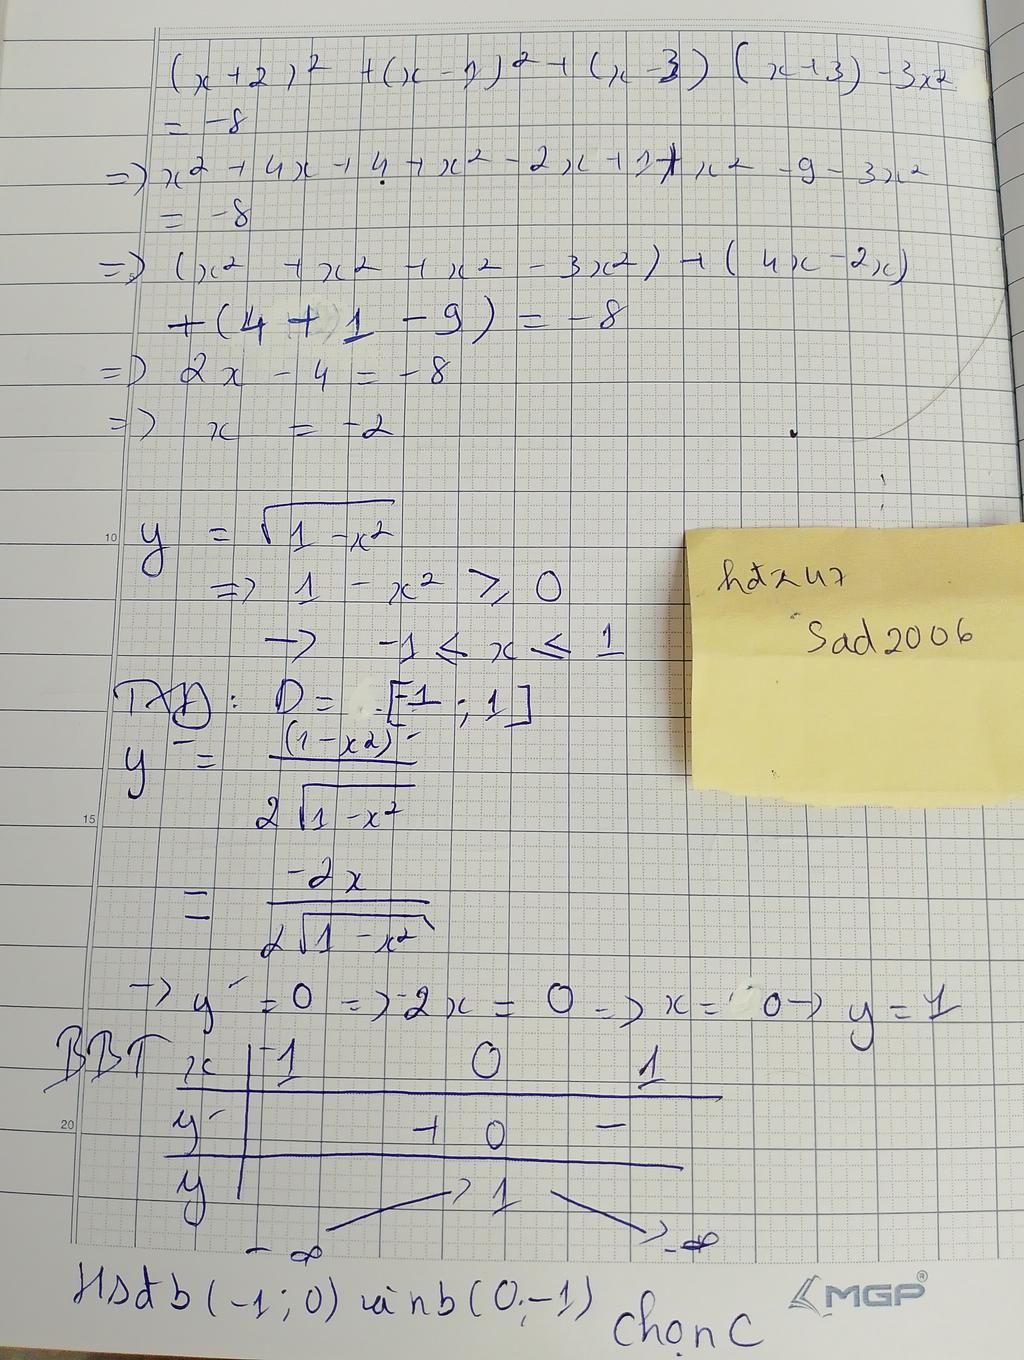 (x+2)² + (x-1)² + (x-3)(x+3) - 3x²
= -8
=> x² + 4x + 4 + x² - 2x + 1 + x² - 9 - 3x²
= -8
=> (x² + x² + x² - 3x²) + (4x - 2x)
+ (4 + 1 - 9) = -8
=> 2x - 4 = -8
=> x = -2
10
y = √(1-x²)
=> 1 - x² ≥ 0
-> -1 ≤ x ≤ 1
TXĐ: D = [-1; 1]
y' = (1-x2)' / 2√(1-x²)
15
= -2x / 2√(1-x²)
-> y' = 0 => -2x = 0 => x = 0 -> y = 1
BBT x -1 0 1
20
y' + 0 -
y -∞ 1 -∞
Hsđb (-1; 0) và nb (0; -1)
Chọn C
Sad2006
MGP®